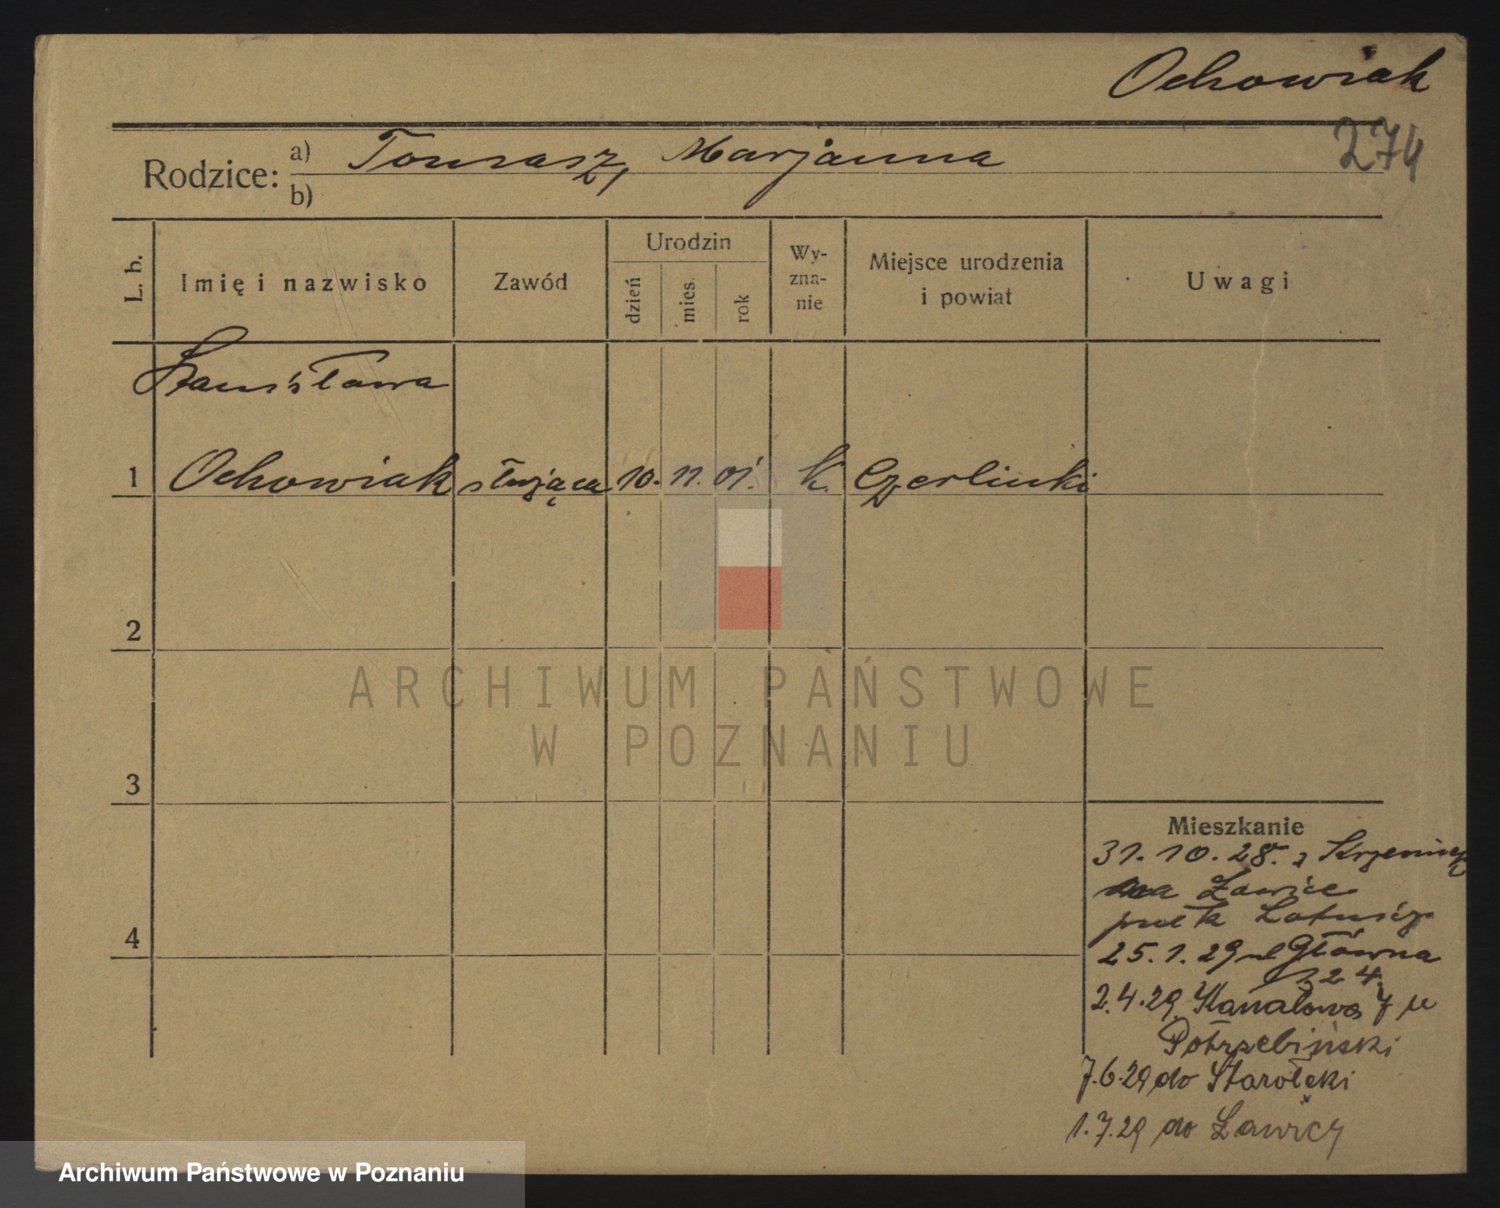 Ochowiak
274
Rodzice: a) Tomasz, Marjanna
b)
L. b.
Imię i nazwisko
Zawód
Urodzin
dzień
mies.
rok
Wy-
zna-
nie
Miejsce urodzenia
i powiat
Uwagi
Stanisława
1 Ochowiak służąca 10. 11. 01. K. Czerlinki
2
3
4
ARCHIWUM PAŃSTWOWE
W POZNANIU
Mieszkanie
31.10.28. z
na Ławice
pułk Lotniczy
25.1.29 ul Główna
24
2.4.29. Kanałowa 7 u
Potrzebiński
7.6.29 do Starołęki
1.7.29 do Ławicy
Archiwum Państwowe w Poznaniu